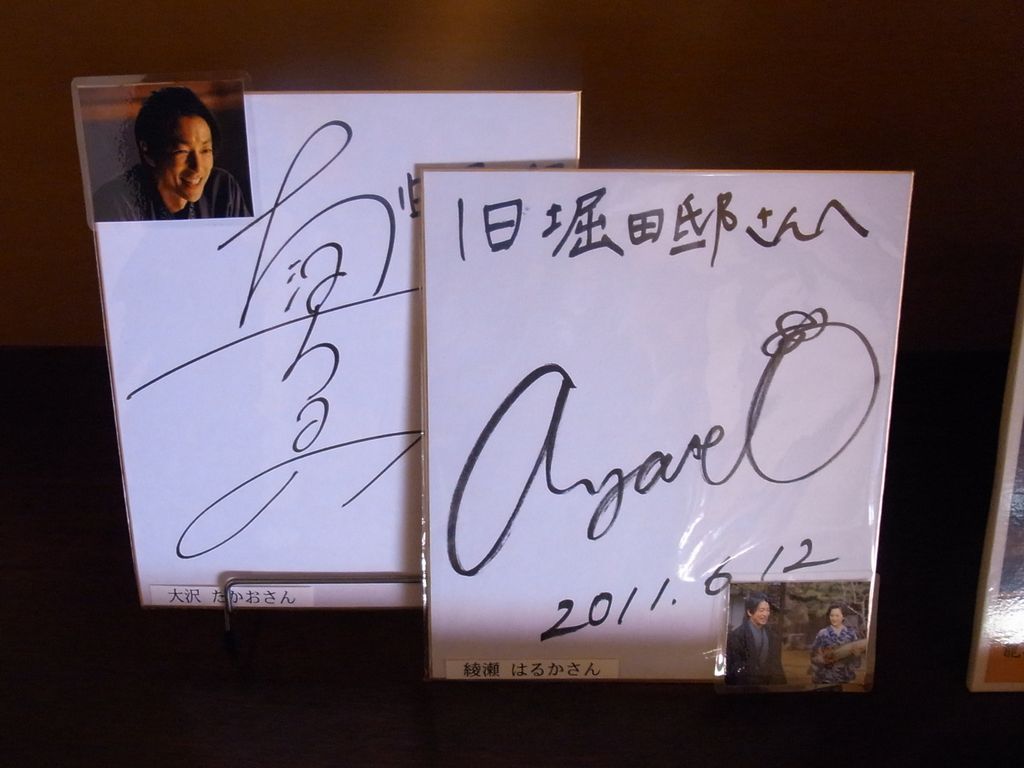 大沢 たかおさん
旧堀田邸さんへ
ayase
2011.6.12
綾瀬 はるかさん